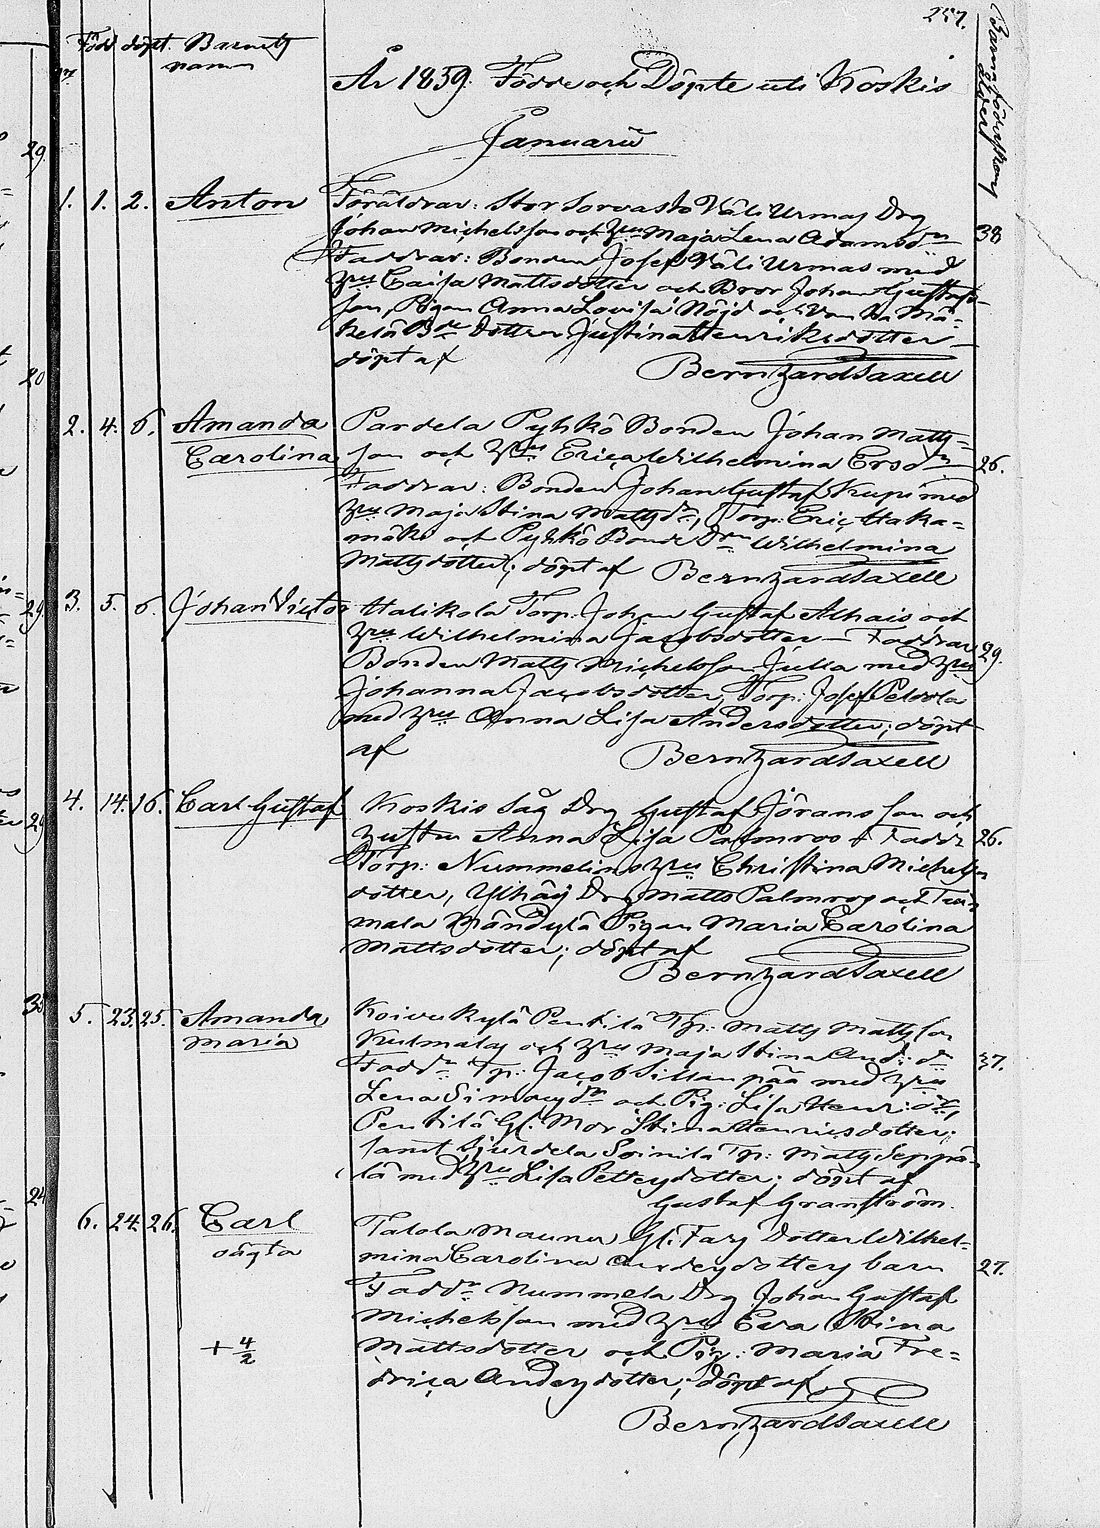 257.
Född döpt. Barnets
namn
Barnaföderskans ålder
År 1859 Födde och Döpte uti Koskis
Januarii
1. 1. 2. Anton Föräldrar: Stor Sorvasto Väli Urmas Drg
Johan Michelsson och hru Maja Lena Adamsdr 38
Faddrar: Bonden Josef Väli Urmas med
hru Caisa Mattsdotter och Bror Johan Gustafs-
son, Pigan Anna Lovisa Nöjd och Mä-
kelä Bde Dotter Justina Henriksdotter
döpt af Bernhard Saxell
2. 4. 6. Amanda Pardela Pyhkö Bonden Johan Matts-
Carolina son och hru Erica Wilhelmina Ersdr 26.
Faddrar: Bonden Johan Gustaf Kupi med
hru Maja Stina Mattsdr, Torp: Eric Haka-
mäki och Pyhkö Bonde Drn Wilhelmina
Mattsdotter; döpt af Bernhard Saxell
3. 5. 6. Johan Victor Halikola Torp: Johan Gustaf Alhais och
hru Wilhelmina Jacobsdotter – Faddrar 29.
Bonden Matts Michelsson Julla med hru
Johanna Jacobsdotter, Torp: Josef Peltola
med hru Anna Lisa Andersdotter; döpt
af Bernhard Saxell
4. 14. 16. Carl Gustaf Koskis Såg Drg Gustaf Göransson och
hustru Anna Lisa Palmroos Faddr 26.
Torp: Nummelins hru Christina Michels
dotter, Ylhäis Drg Matts Palmros och
mala Mändylä Pigan Maria Carolina
Mattsdotter; döpt af
Bernhard Saxell
5. 23. 25. Amanda Koivukylä Pentilä Tp: Matts Mattsson
Maria Kulmala och hru Maja Stina And: dr 37.
Faddr Tp: Jacob Sillanpää med hru
Lena Simonsdr och Pig: Lisa Henr: dr,
Pentilä Gl: Mor Stina Henricsdotter;
samt Sjurdela Soinila Tp: Matts Seppä-
lä med hru Lisa Pettersdotter; döpt af
Gustaf Granström.
6. 24. 26. Carl Talola Maunu Gl: Fars Dotter Wilhel-
oägta mina Carolina Andersdotters barn 27.
Faddr Nummela Drg Johan Gustaf
Michelsson med hru Eva Stina
+ 4/2 Mattsdotter och Pig: Maria Fre-
drica Andersdotter; döpt af
Bernhard Saxell